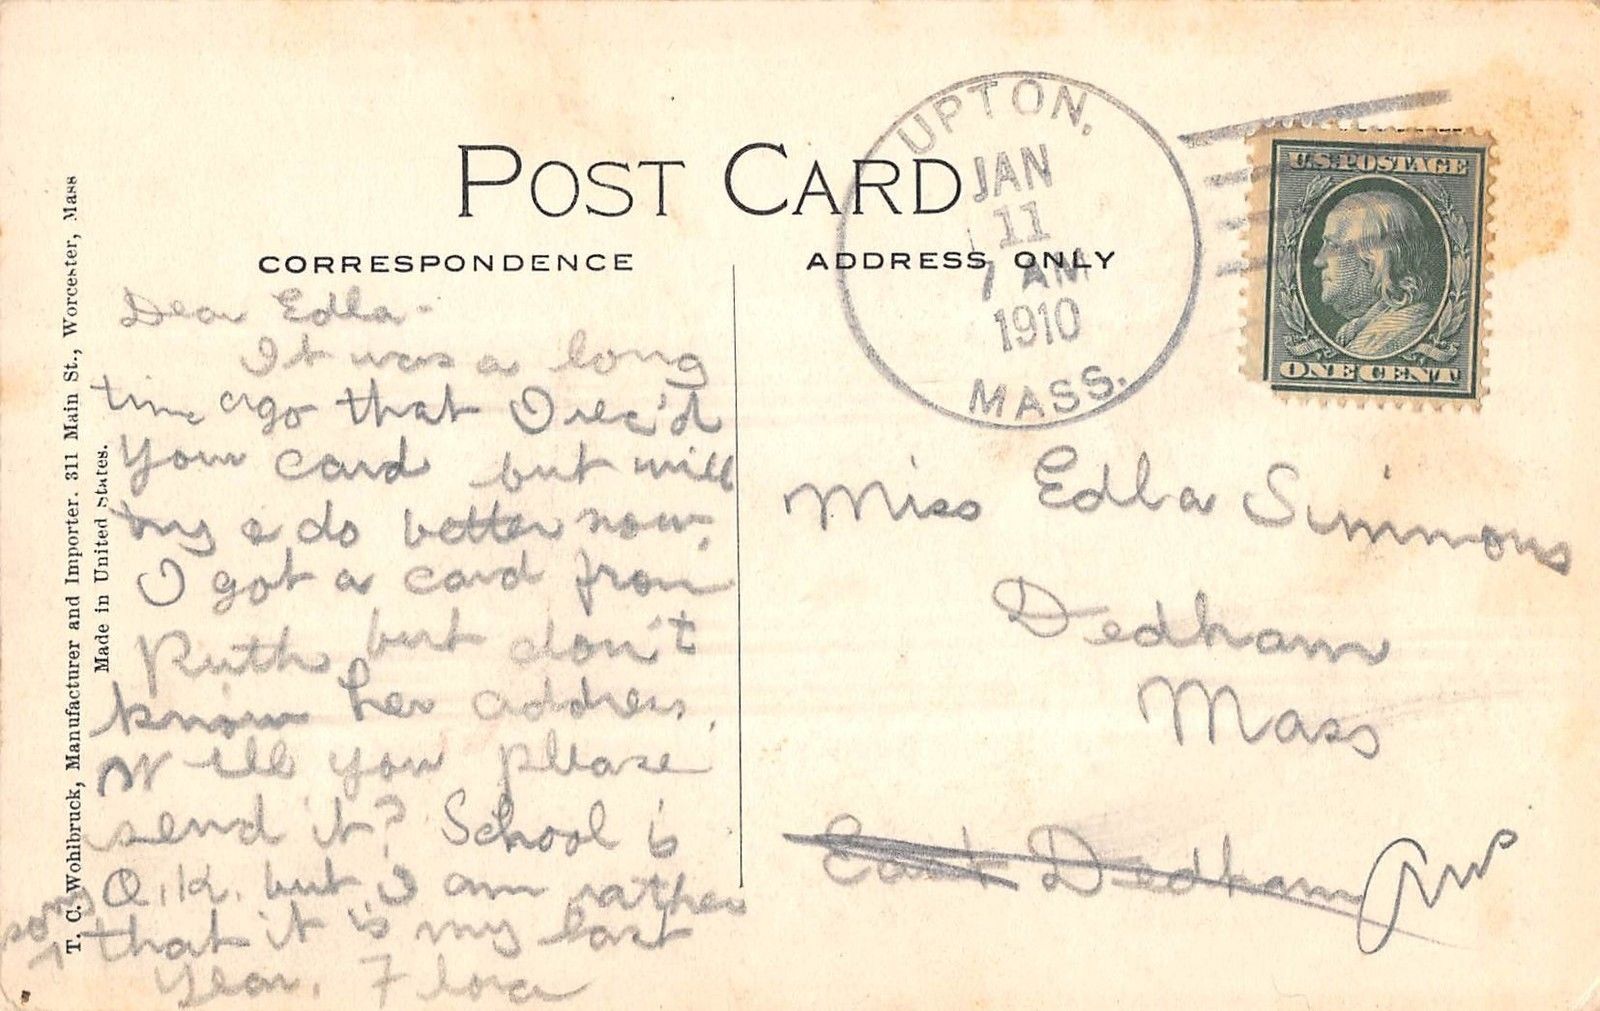 POST CARD
CORRESPONDENCE
ADDRESS ONLY
UPTON.
JAN
11
7 AM
1910
MASS.
U.S. POSTAGE
ONE CENT
T. C. Wohlbruck, Manufacturer and Importer. 311 Main St., Worcester, Mass
Made in United States.
Dear Edla-
It was a long
time ago that I rec'd
your card but will
try & do better now.
I got a card from
Ruth but don't
know her address.
Will you please
send it? School is
O.K. but I am rather
sorry that it is my last
year. Flora
Miss Edla Simmons
Dedham
Mass
East Dedham